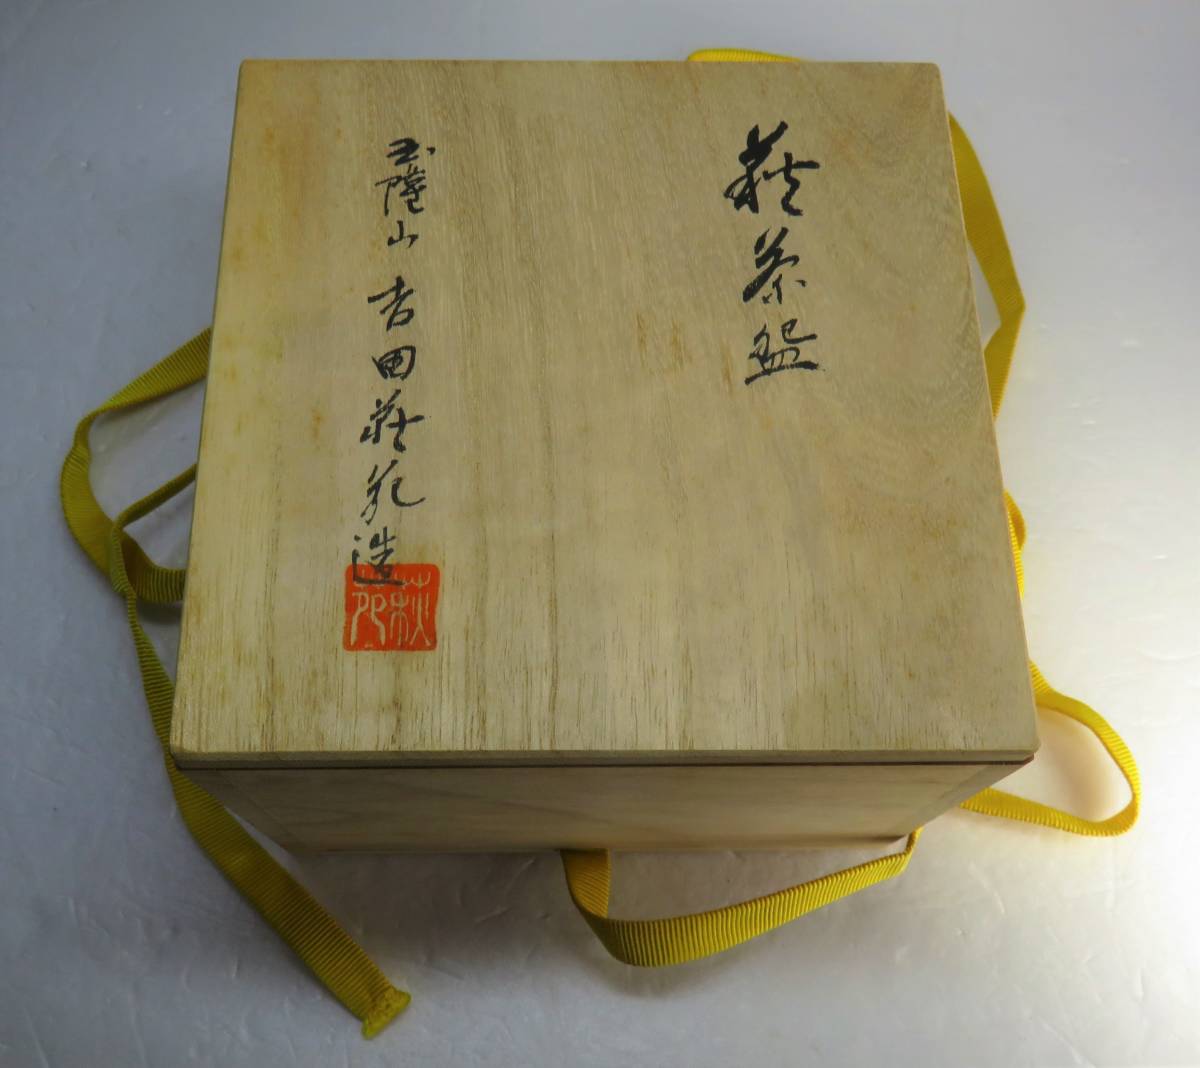 萩茶盌
玉隆山 吉田萩苑造
萩苑